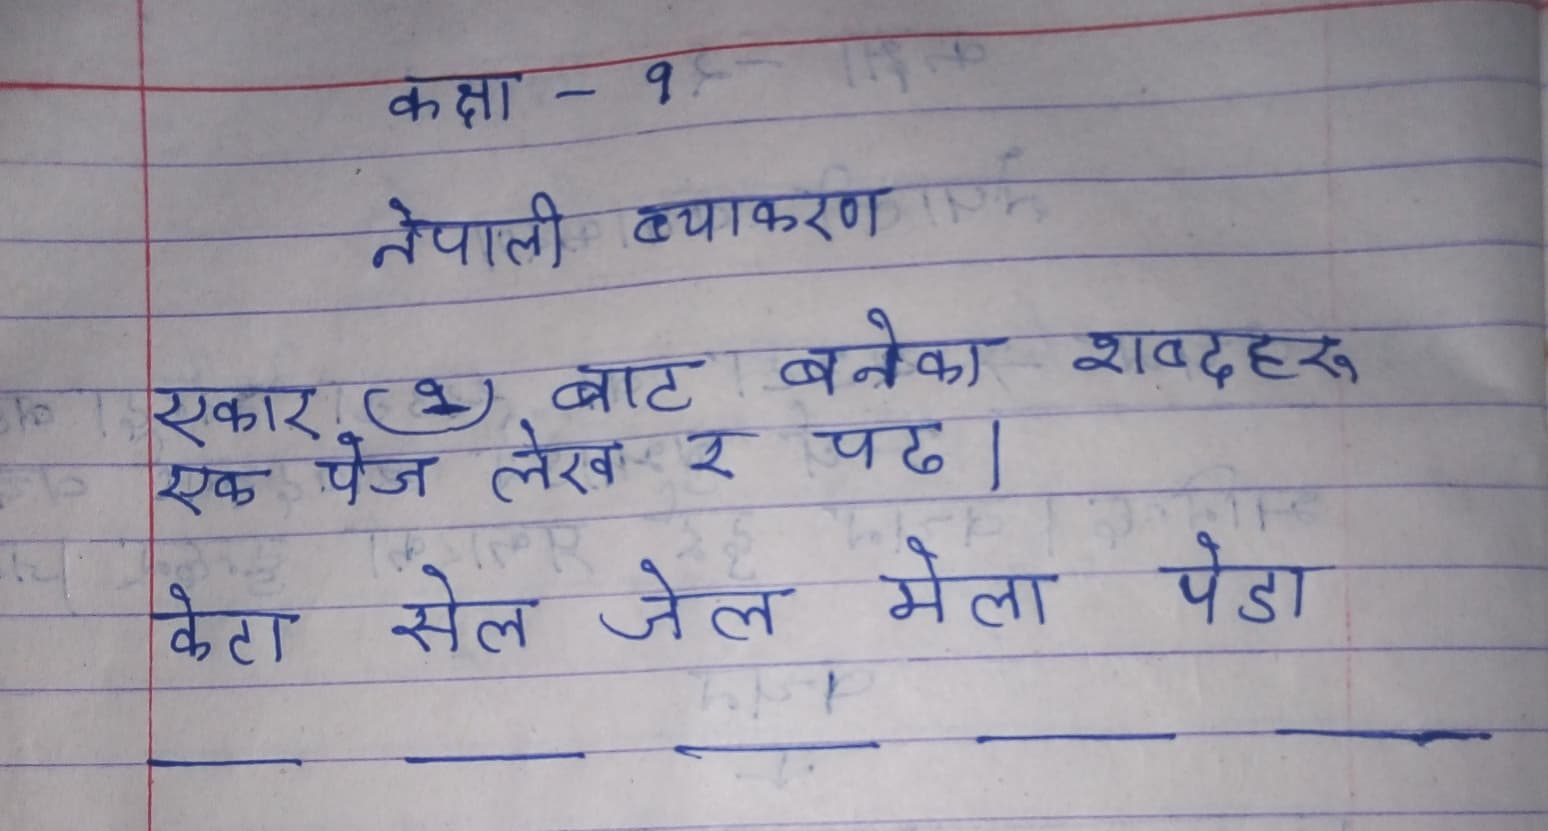 कक्षा - १
नेपाली ब्याकरण
एकार (े) बाट बनेका शब्दहरू
एक पेज लेख र पढ ।
केटा सेल जेल मेला पेडा